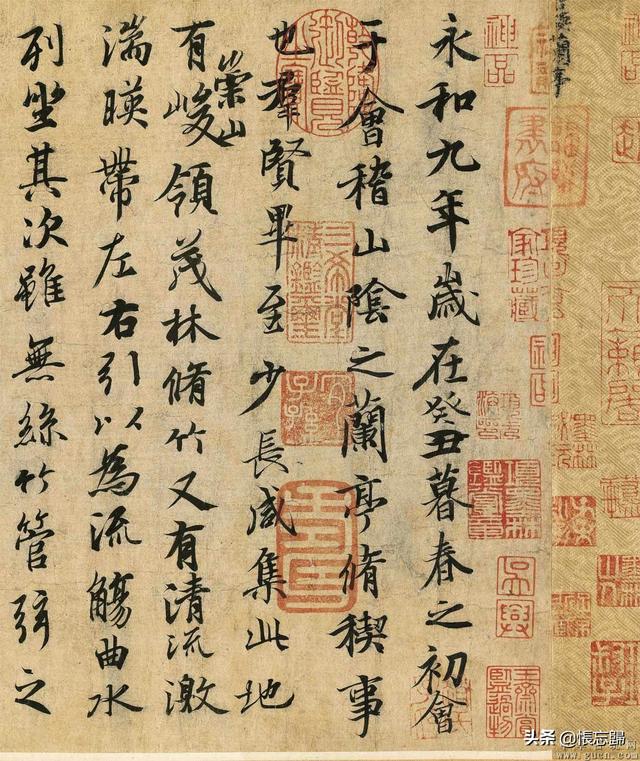 永和九年歲在癸丑暮春之初會
于會稽山陰之蘭亭脩稧事
也羣賢畢至少長咸集此地
有崇山峻領茂林脩竹又有清流激
湍暎帶左右引以為流觴曲水
列坐其次雖無絲竹管弦之
頭条 @悵忘歸
www.gucn.com